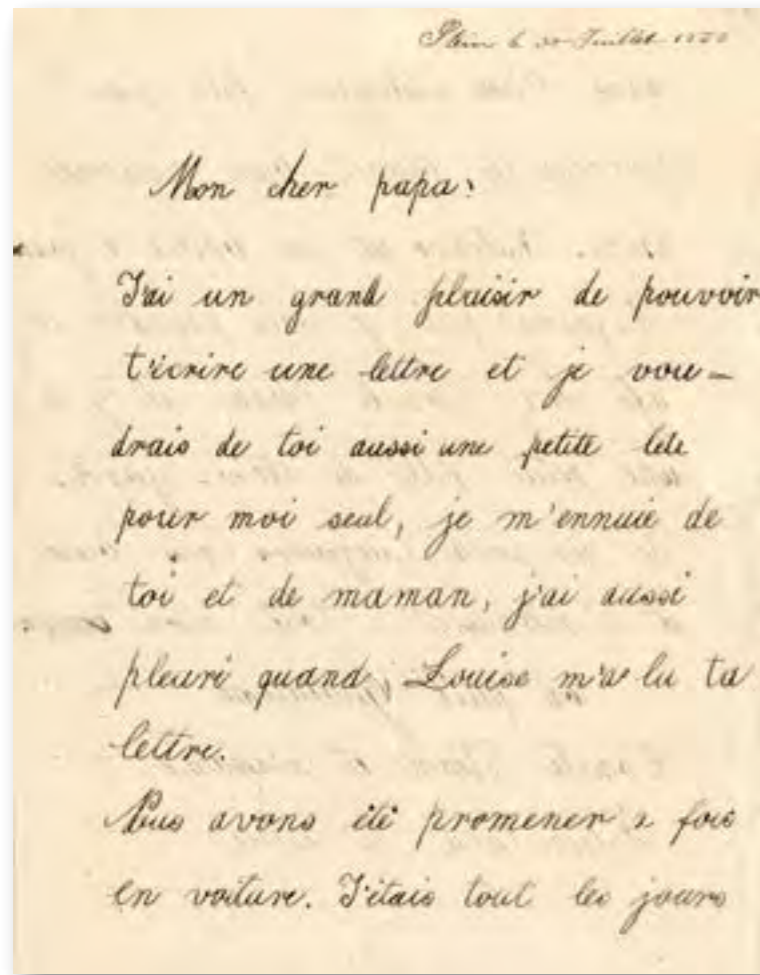 le 30 Juillet
Mon cher papa:
J'ai un grand plaisir de pouvoir
t'écrire une lettre et je vou-
drais de toi aussi une petite lete
pour moi seul, je m'ennuie de
toi et de maman, j'ai aussi
pleuré quand Louise m'a lu ta
lettre.
Nus avons été promener 2 fois
en voiture. J'étais tout les jours